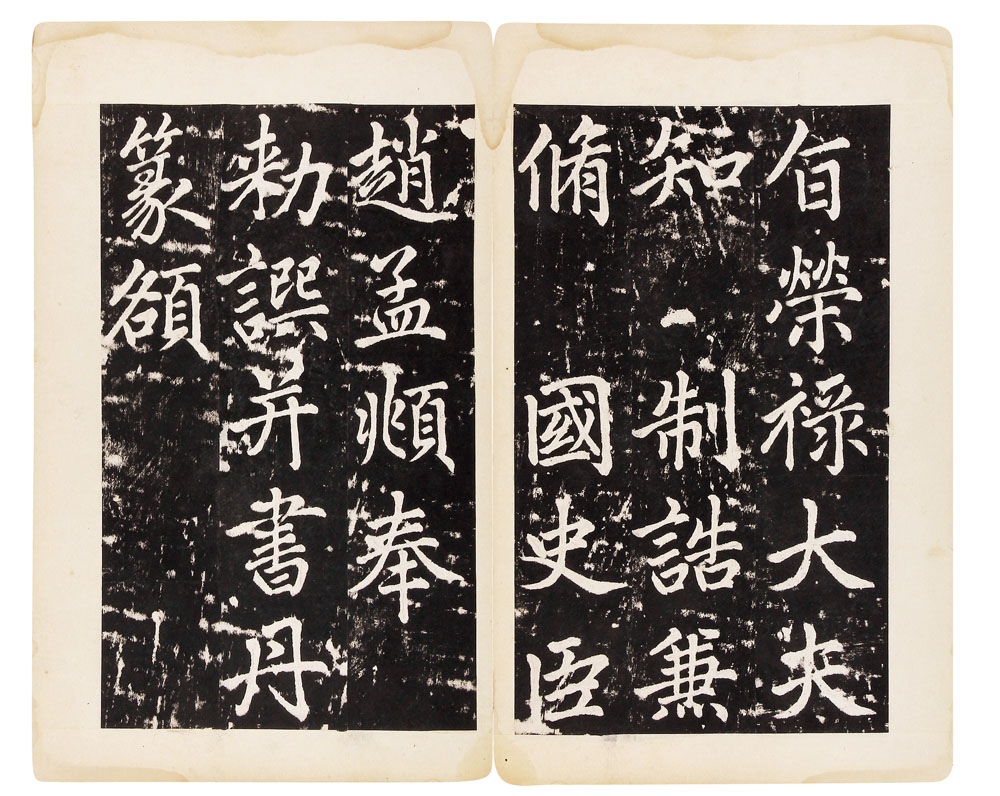 旨榮祿大夫
知制誥兼
脩國史臣
趙孟頫奉
勅譔并書丹
篆額